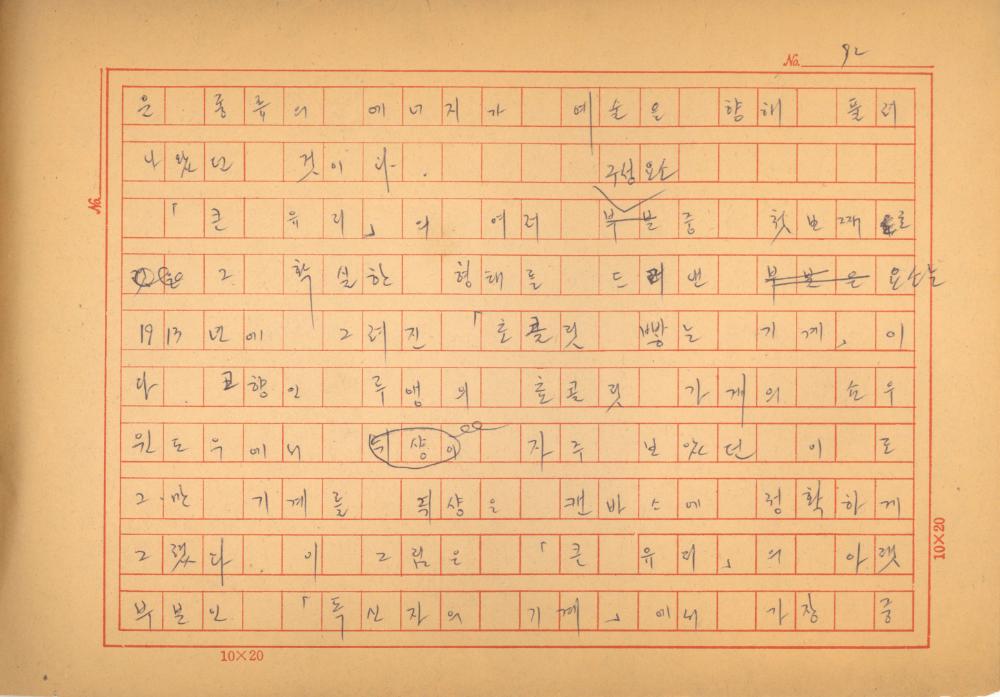 No. 92
은 종류의 에너지가 예술은 향해 풀려
나왔던 것이다.
구성요소
「큰 유리」의 여러 부분중 첫번째로
그 확실한 형태를 드러낸 부분은 요소는
1913년에 그려진 「초콜릿 빻는 기계」이
다. 고향인 루앙의 초콜릿 가게의 쇼우
윈도우에서 뒤샹이 자주 보았던 이 로
그만 기계를 뒤샹은 캔바스에 정확하게
그렸다. 이 그림은 「큰 유리」의 아랫
부분인 「독신자의 기계」에서 가장 중
No.
10×20
10×20